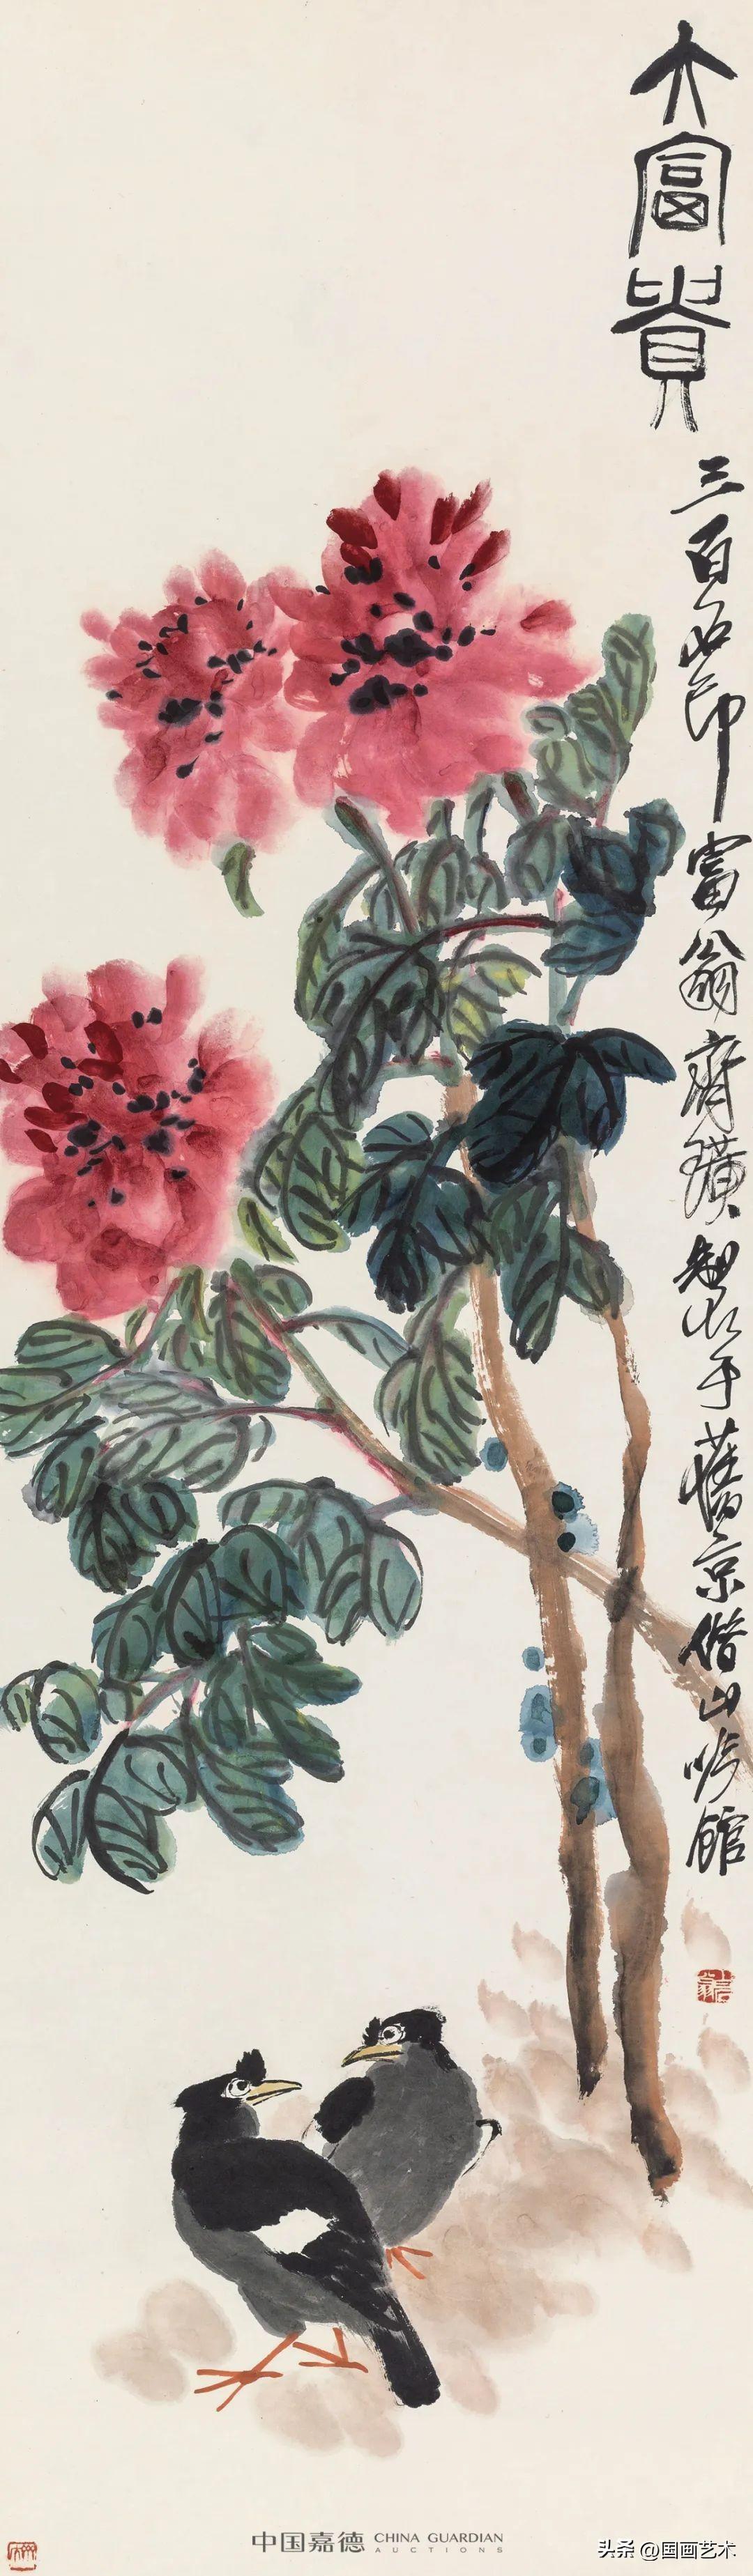 大富貴
三百石印富翁齊璜製於于舊京借山吟館
中国嘉德 CHINA GUARDIAN
AUCTIONS
头条 @国画艺术